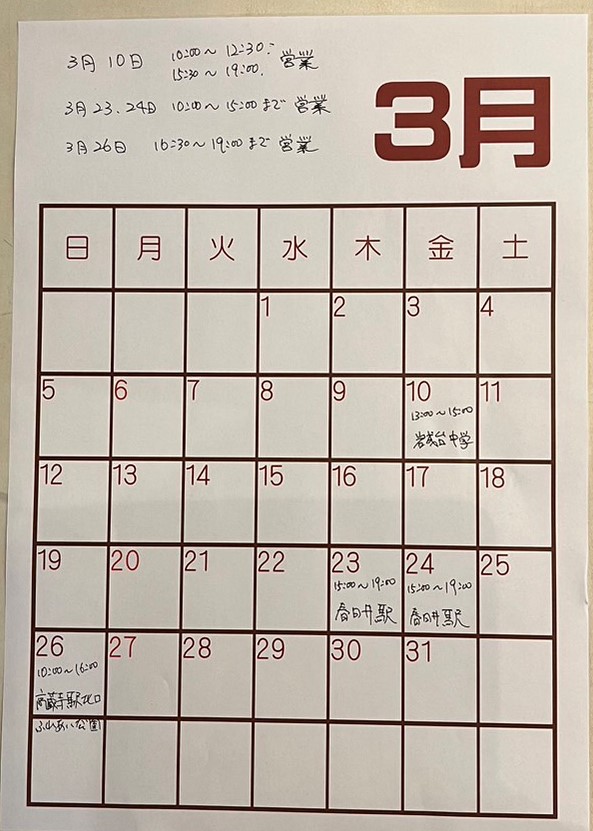 3月10日 10:00〜12:30.
15:30〜19:00. 営業
3月23.24日 10:00〜15:00まで 営業
3月26日 16:30〜19:00まで 営業
3月
日 月 火 水 木 金 土
1 2 3 4
5 6 7 8 9 10 11
13:00〜15:00
岩成台中学
12 13 14 15 16 17 18
19 20 21 22 23 24 25
15:00〜19:00 15:00〜19:00
春日井駅 春日井駅
26 27 28 29 30 31
10:00〜16:00
高蔵寺駅北口
ふれあい公園